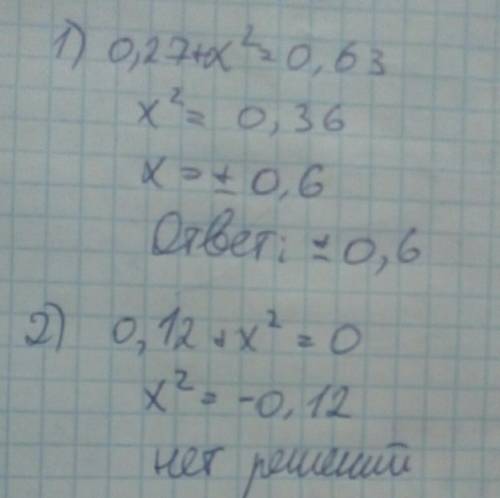 1) 0,27+x²=0,63
x² = 0,36
x = ± 0,6
Ответ: ± 0,6
2) 0,12 + x² = 0
x² = -0,12
нет решений